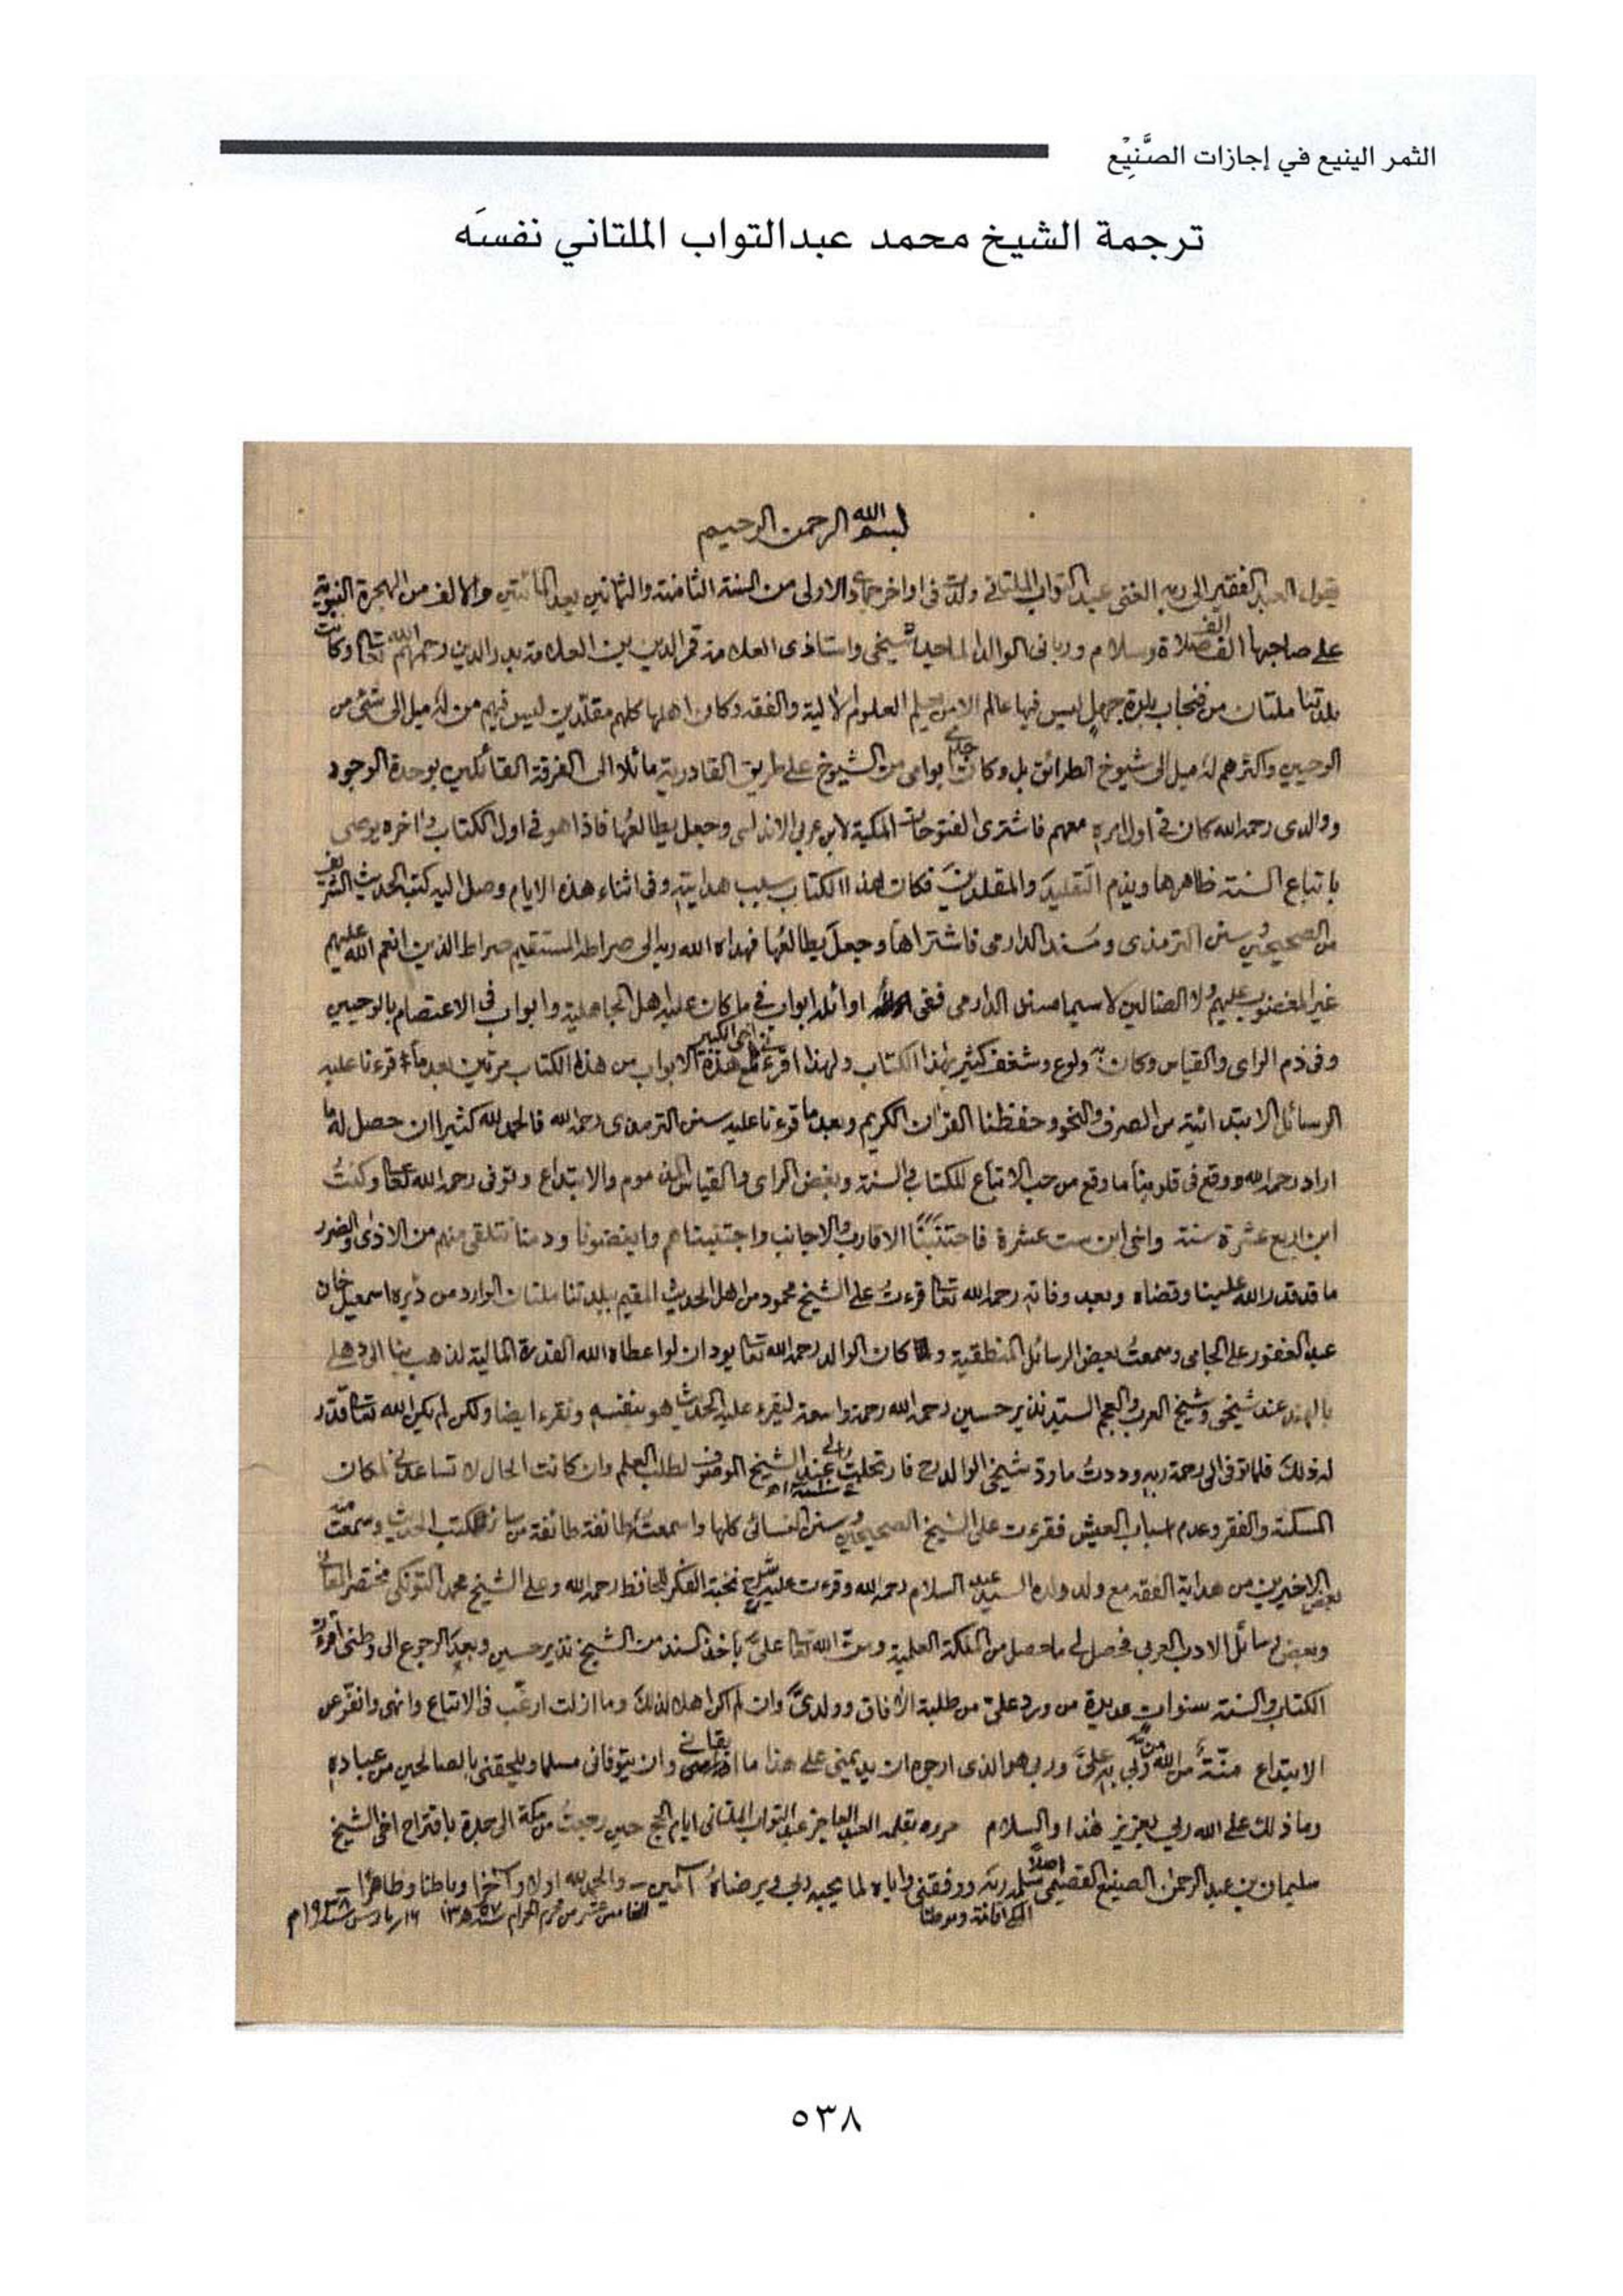 الثمر الينيع في إجازات الصَّنِيْع
ترجمة الشيخ محمد عبدالتواب الملتاني نفسَه
بسم الله الرحمن الرحيم
يقول العبد الفقير الى ربه الغنى عبد التواب الملتانى ولدت فى اواخر جمادى الاولى من السنة الثامنة والثمانين بعد المأتين والالف من الهجرة النبوية
على صاحبها الف الف صلاة وسلام وربانى الوالد الماجد شيخى واستاذى العلامة قمر الدين بن العلامة بدر الدين رحمهم الله تعالى وكانت
بلدتنا ملتان من فنجاب بلدة جهل ليس فيها عالم الا من يعلم العلوم الآلية والفقه وكان اهلها كلهم مقلدين ليس فيهم من له ميل الى شئ من
الوحيين واكثرهم له ميل الى شيوخ الطرائق بل وكان جدى ابو امى من الشيوخ على طريق القادرية مائلا الى الفرقة القائلين بوحدة الوجود
ووالدى رحمه الله كان فى اول امره معهم فاشترى الفتوحات المكية لابن عربى الاندلسى وجعل يطالعها فاذا هو فى اول الكتاب وآخره يوصى
باتباع السنة ظاهرها ويذم التقليد والمقلدين فكان هذا الكتاب سبب هدايته وفى اثناء هذه الايام وصل اليه كتب الحديث الشريف
من الصحيحين وسنن الترمذى ومسند الدارمى فاشتراها وجعل يطالعها فهداه الله ربه الى صراطه المستقيم صراط الذين انعم الله عليهم
غير المغضوب عليهم ولا الضالين لا سيما مسند الدارمى ففى اوائله ابواب فى ما كان عليه اهل الجاهلية وابواب فى الاعتصام بالوحيين
وفى ذم الراى والقياس وكان له ولوع وشغف كثير بهذا الكتاب ولهذا اقرءنى مع اخى الكبير هذه الابواب من هذا الكتاب مرتين بعد ما قرءنا عليه
الرسائل الابتدائية من الصرف والنحو وحفظنا القرآن الكريم وبعد ما قرءنا عليه سنن الترمذى رحمه الله فالحمد لله كثيرا ان حصل له ما
اراد رحمه الله ووقع فى قلوبنا ما وقع من حب الاتباع للكتاب والسنة وبغض الراى والقياس المذموم والابتداع وتوفى رحمه الله تعالى وكنتُ
ابن اربع عشرة سنة واخى ابن ست عشرة فاجتنبنا الاقارب والاجانب واجتنبناهم وابغضونا ودمنا نتلقى منهم من الاذى والضرر
ما قد قدر الله علينا وقضاه وبعد وفاته رحمه الله تعالى قرءتُ على الشيخ محمود من اهل الحديث المقيم ببلدتنا ملتان الوارد من ڈيره اسمعيل خان
عبد الغفور على الجامى وسمعتُ بعض الرسائل المنطقية و كان الوالد رحمه الله تعالى يود ان لو اعطاه الله القدرة المالية لذهب بنا الى دهلى
بالهند عند شيخى وشيخ العرب والعجم السيد نذير حسين رحمه الله رحمة واسعة ليقرء عليه الحديث هو بنفسه ونقرء ايضا ولكن لم يكن الله تعالى قدّر
له ذلك فلما توفى الى رحمة ربه وددتُ ما ودّ شيخى الوالد فارتحلتُ الى عند الشيخ الموصوف لطلب العلم وان كانت الحال لا تساعدنى لمكان
المسكنة والفقر وعدم اسباب العيش فقرءت على الشيخ الصحيحين وسنن النسائى كلها واسمعتُ طائفة طائفة من سائر كتب الحديث وسمعت منه
بعض الاخيرين من هداية الفقه مع ولد ولده السيد عبد السلام رحمه الله وقرءت عليه شرح نخبة الفكر للحافظ رحمه الله وعلى الشيخ محمد التونكى مختصر المعانى
وبعض رسائل الادب العربى فحصل لى ما حصل من الملكة العلمية ومنّ الله تعالى علىّ باخذ السند من الشيخ نذير حسين وبعد الرجوع الى وطنى اقرءتُ
الكتاب والسنة سنوات عديدة من ورد علىّ من طلبة الآفاق وولدىّ وان لم اكن اهلا لذلك وما ازلت ارغّب فى الاتباع وانهى وانفّر عن
الابتداع منّةً من الله ربى به علىّ وربى هو الذى ارجوه ان يديمنى على هذا ما ابقانى وان يتوفانى مسلما ويلحقنى بالصالحين من عباده
وما ذلك على الله ربى بعزيز هذا والسلام حرره بقلمه العبد العاجز عبد التواب الملتانى ايام الحج حين رجعتُ من مكة الى جدة باقتراح اخى الشيخ
سليمان بن عبد الرحمن الصنيع القصيمى اصلاً سلمه ربه ووفقنى واياه لما يحبه ربى ويرضاه آمين - والحمد لله اولا وآخرا وباطنا وظاهرا -
المكى اقامة وموطنا الخامس عشر من محرم الحرام سنة ١٣٥٧ھ ١٦ر مارس سنة ١٩٣٨م
٥٣٨